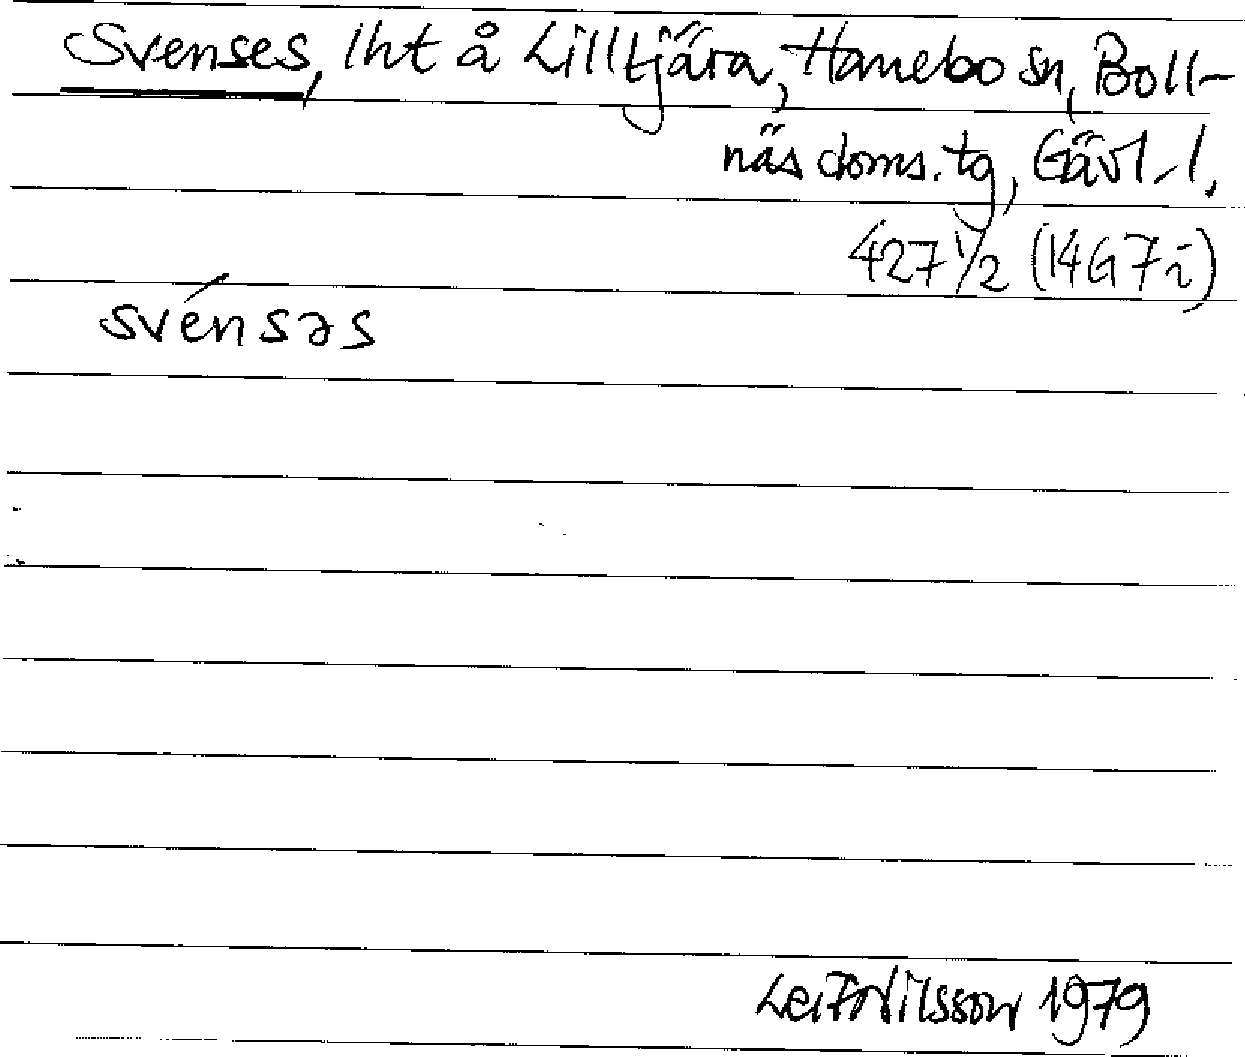 Svenses, lht å Lilltjära, Hanebo sn, Boll-
näs doms. tg, Gävl. l.
427 1/2 (14G7i)
svénsəs
Leif Nilsson 1979